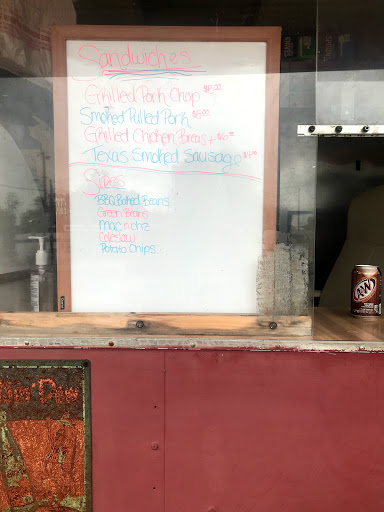 Sandwiches
Grilled Pork Chop
Smoked Pulled Pork
Grilled Chicken Breast
Texas Smoked Sausage
Sides
BBQ Baked Beans
Green Beans
Mac n chz
Coleslaw
Potato Chips
A&W